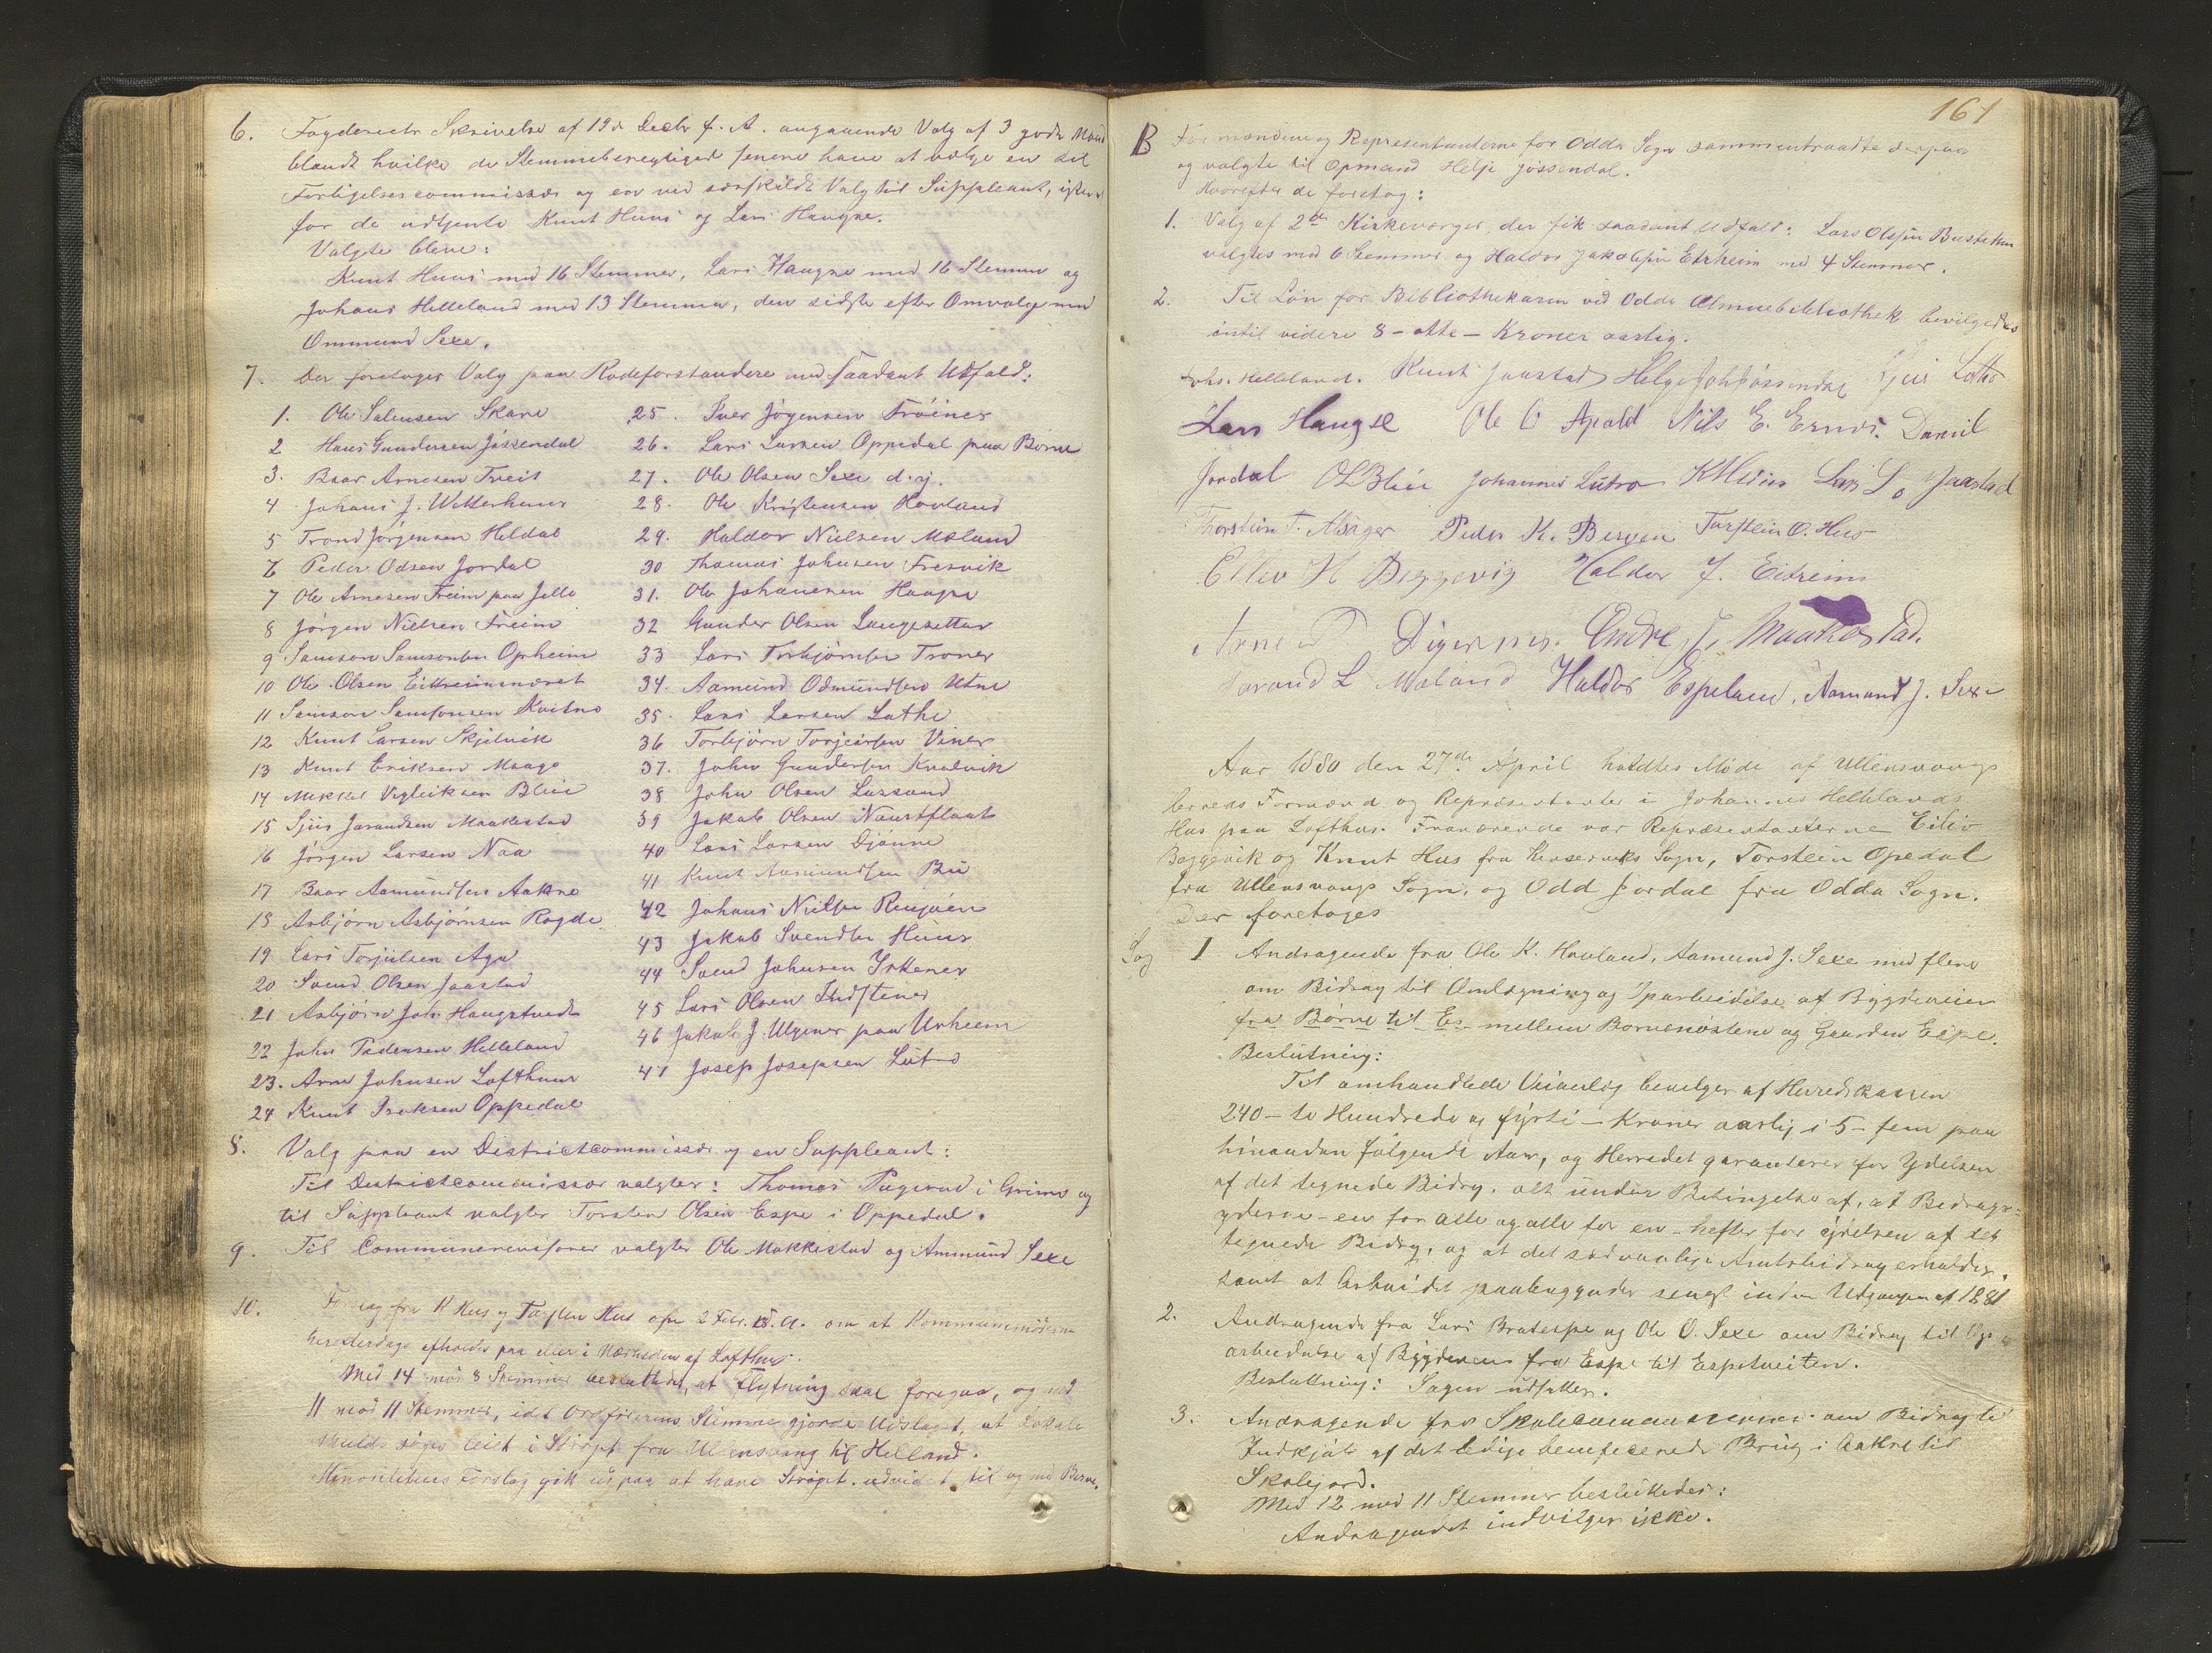 6. Fogderiets Skrivelse af 19de Decbr f. A. angaaende Valg af 3 gode Mænd
blandt hvilke de Stemmeberegtiged senere have at vælge en til
Forligelsescommissær og een ved særskildt Valg til Suppleant, istedet
for de udtjente Knut Huus og Lars Haugse.
Valgte bleve:
Knut Huus med 16 Stemmer, Lars Haugse med 16 Stemmer og
Johans Helleland med 13 Stemmer, den sidste efter Omvalg med
Ommund Sexe.
7. Der foretoges Valg paa Rodeforstandere med saadant Udfald:
1. Ole Salmsen Skare
2 Hans Gundersen Jössendal
3. Baar Arnesen Freit
4 Johans J. Wetterhuus
5 Trond Jörgensen Hildal
6 Peder Odsen Jordal
7 Ole Arnesen Freim paa Jello
8 Jörgen Nielsen Freim
9 Samson Samsonsen Opheim
10 Ole Olsen Eittreimsnæset
11 Samson Samsonsen Kvitno
12 Knut Larsen Skjelvik
13 Knut Eriksen Maage
14 Mikkel Vigleiksen Bleie
15 Sjur Jarandsen Maakestad
16 Jörgen Larsen Naa
17 Baar Aamundsen Aakre
18 Asbjörn Asbjörnsen Rogde
19 Lars Torjulsen Aga
20 Svend Olsen Jaastad
21 Asbjörn Joh. Haugstvedt
22 John Pedersen Helleland
23. Arne Johnsen Lofthuus
24 Knut Isaksen Oppedal
25. Iver Jörgensen Fröines
26. Lars Larsen Oppedal paa Börve
27. Ole Olsen Sexe d. y.
28. Ole Kristensen Hovland
29. Haldor Nielsen Måland
30 Thomas Johnsen Fresvik
31. Ole Johannesen Haaper
32 Gunder Olsen Langesetter
33 Lars Torbjörnsen Trones
34. Aamund Odmundsen Utne
35. Lars Larsen Lothe
36 Torbjörn Torgeirsen Vines
37. John Gundersen Kvalvik
38 John Olsen Lussand
39 Jakob Olsen Naustflaat
40 Lars Larsen Djönne
41 Knut Aamundsen Bu
42 Johans Nielsen
43 Jakob Svendsen Huus
44 Svend Johnsen Ystenes
45 Lars Olsen Indstenes
46 Jakob J. Ulgenes paa Urheim
47 Josep Josepsen Lutro
8. Valg paa en Districtcommissær og en Suppleant:
Til Districtcommissær valgtes: Thomas Pugerud i Grimo og
til Suppleant valgtes Torsten Olsen Espe i Oppedal.
9. Til Communerevisorer valgtes Ole Makkestad og Ammund Sexe
10. Forslag fra K Hus og Torsten Hus af 2 Febr. d. A. om at Kommunemöderne
herefterdags afholdes paa eller i Nærheden af Lofthus.
Med 14 mod 8 Stemmer besluttedes, at Flytning skal foregaa, og med
11 mod 11 Stemmer, idet Ordförerens Stemme gjorde Udslaget, at Lokale
skulde söges leiet i Ströget fra Ullensvang til Helland.
Minoritetens Forslag gik ud paa at have Ströget udvidet til og med Börve.
161
B Formændene og Representanterne for Odda Sogn sammentraadte derpaa
og valgte til Opmand Helje Jössendal.
Hvorefter de foretog:
1. Valg af 2de Kirkeværger, der fik saadant Udfald: Lars Olsen Bustetun
valgtes med 6 Stemmer og Haldor Jakobsen Eitrheim med 4 Stemmer.
2. Til Lön for Bibliothekaren ved Odda Almuebibliothek bevilgedes
intil videre 8 - otte - Kroner aarlig.
Johs. Helleland. Knut Jaastad Helge Joh Jössendal Sjur Lothe
Lars Haugse Ole O Apold Nils E. Ernes. Daniel
Jordal O L Bleie Johannis Lutro K Huus Lars L. Jaastad
Thorstein T. Alsager Peder K. Bergen Torstein O. Hus
Ellev H Beggevig Haldor J. Eitreim
Arne Digernes. Endre J. Maakestad.
Jarand L Maland Haldor Espeland, Aamund J. Sexe
Aar 1880 den 27de April holdtes Möde af Ullensvangs
herreds Formænd og Repræsentanter i Johannes Hellelands
Hus paa Lofthus. Fraværende var Repræsentanterne Eiliv
Beggevik og Knut Hus fra Kinserviks Sogn, Torstein Opedal
fra Ullensvangs Sogn, og Odd Jordal fra Odda Sogn.
Der foretoges
Sag 1 Andragende fra Ole K. Hovland, Aamund J. Sexe med flere
om Bidrag til Omlægning og Oparbeidelse af Bygdeveien
fra Börve til Es mellem Börvenöstene og Gaarden Espe.
Beslutning:
Til omhandlede Veianlæg bevilges af Herredskassen
240 - to Hundrede og fyrti - Kroner aarlig i 5 - fem paa
hinanden fölgende Aar, og Herredet garanterer for Ydelsen
af det tegnede Bidrag, alt under Betingelse af, at Bidrags-
yderne - en for alle og alle for en - hefter for ydelsen af det
tegnede Bidrag, og at det sædvanlige Amtsbidrag erholdes,
samt at Arbeidet paabegyndes senest inden Udgangen af 1881
2. Andragende fra Lars Bratespe og Ole O. Sexe om Bidrag til Op-
arbeidelse af Bygdeveien fra Espe til Espetveiten.
Beslutning: Sagen udsættes.
3. Andragende fra Skolecommissionen om Bidrag til
Indkjöb af det ledige beneficerede Brug i Aakre til
Skolejord.
Med 12 mod 11 Stemmer besluttedes:
Andragendet indvilges ikke.